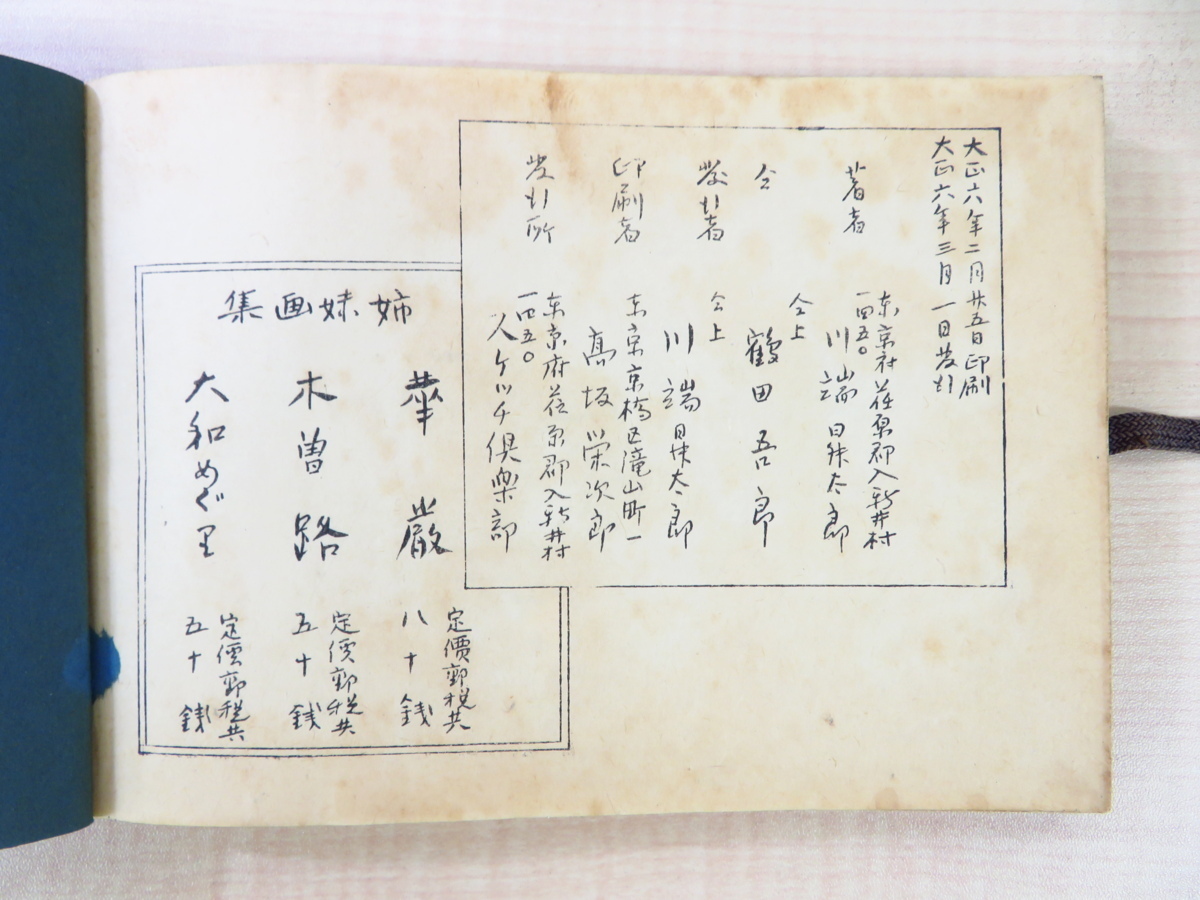 大正六年二月廿五日印刷
大正六年三月一日発行
著者
東京府荏原郡入新井村
一四五〇
川端昇太郎
仝
仝上
鶴田吾郎
発行者
仝上
川端昇太郎
印刷者
東京京橋区滝山町一
高坂栄次郎
発行所
東京府荏原郡入新井村
一四五〇
スケッチ倶楽部
姉妹画集
華厳
定價郵税共
八十銭
木曽路
定價郵税共
五十銭
大和めぐり
定價郵税共
五十銭